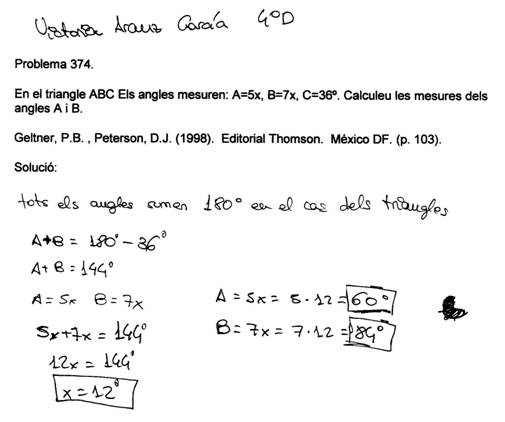 Victoria Arauz García 4ºD
Problema 374.
En el triangle ABC Els angles mesuren: A=5x, B=7x, C=36º. Calculeu les mesures dels
angles A i B.
Geltner, P.B. , Peterson, D.J. (1998). Editorial Thomson. México DF. (p. 103).
Solució:
tots els angles sumen 180º en el cas dels triangles
A+B = 180º - 36º
A+B = 144º
A = 5x B = 7x
5x+7x = 144º
12x = 144º
x = 12º
A = 5x = 5 · 12 = 60º
B = 7x = 7 · 12 = 84º